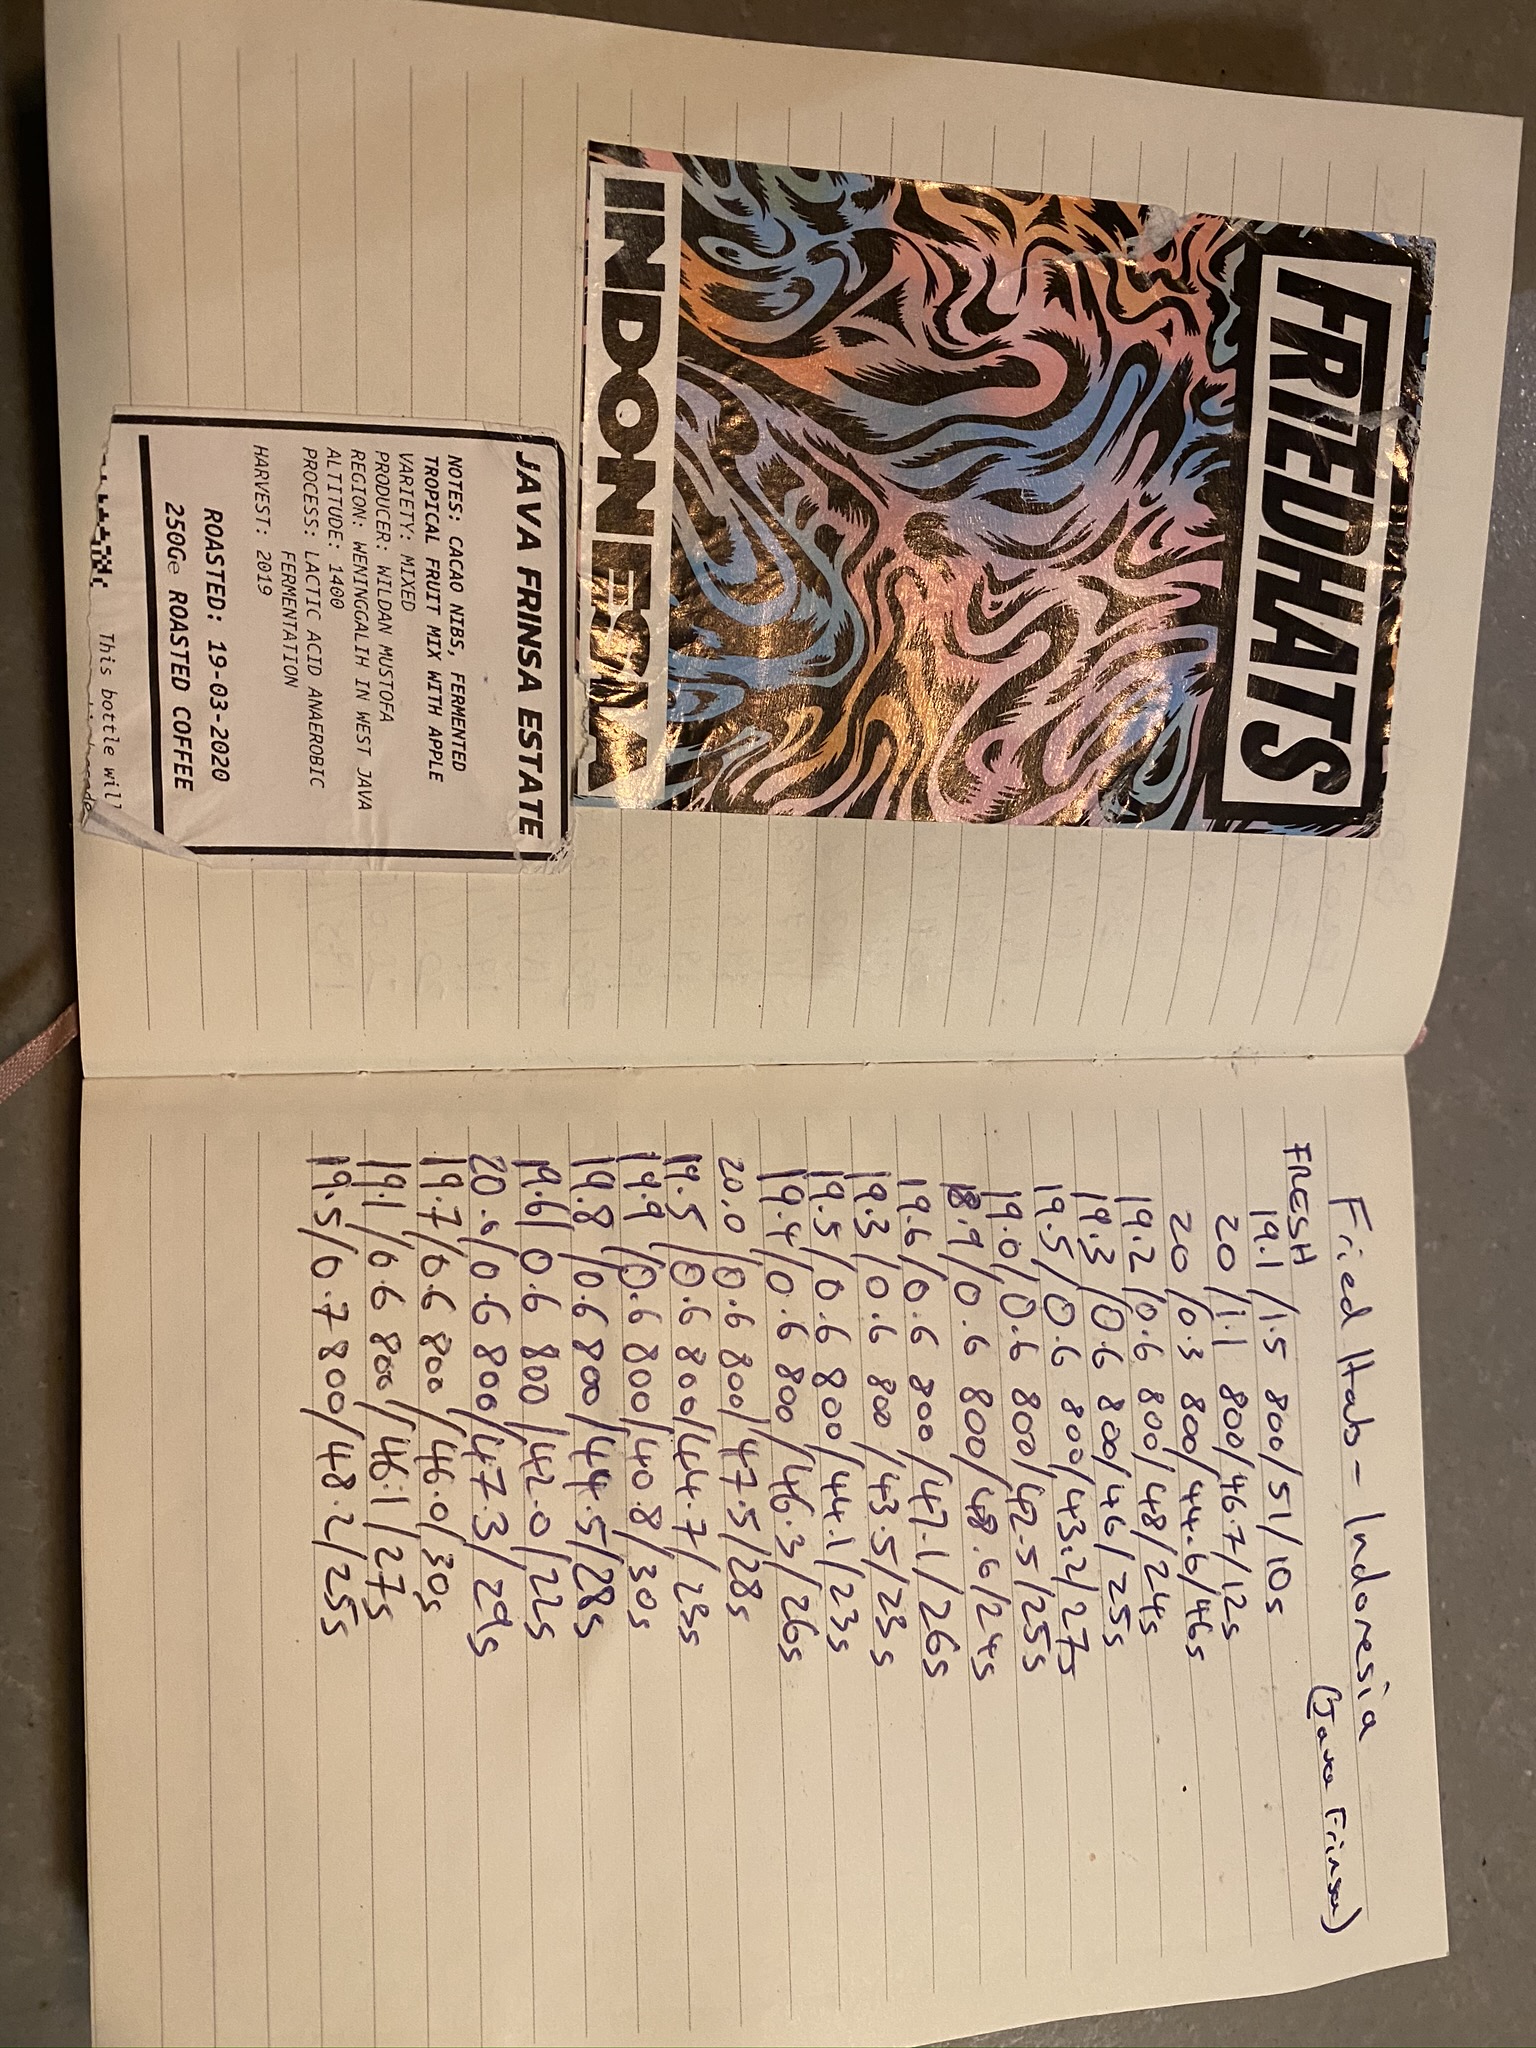 FRIEDHATS
INDONESIA
JAVA FRINSA ESTATE
NOTES: CACAO NIBS, FERMENTED
TROPICAL FRUIT MIX WITH APPLE
VARIETY: MIXED
PRODUCER: WILDAN MUSTOFA
REGION: WENINGGALIH IN WEST JAVA
ALTITUDE: 1400
PROCESS: LACTIC ACID ANAEROBIC
FERMENTATION
HARVEST: 2019
ROASTED: 19-03-2020
250Ge ROASTED COFFEE
This bottle will
Fried Hats - Indonesia
(Java Frinsa)
FRESH
19.1 / 1.5 800/51/10s
20 / 1.1 800/46.7/12s
20 /0.3 800/44.6/46s
19.2 /0.6 800/48/24s
19.3 /0.6 800/46/25s
19.5 /0.6 800/43.2/27s
19.0/0.6 800/42.5/25s
18.9/0.6 800/48.6/24s
19.6/0.6 800/47.1/26s
19.3 /0.6 800/43.5/23s
19.5/0.6 800/44.1/23s
19.4/0.6 800/46.3/26s
20.0 /0.6 800/47.5/28s
19.5 /0.6 800/44.7/23s
19.9 /0.6 800/40.8/30s
19.8 /0.6 800/44.5/28s
19.6/ 0.6 800/42.0/22s
20.0/0.6 800/47.3/29s
19.7/0.6 800/46.0/30s
19.1/0.6 800/46.1/27s
19.5/0.7 800/48.2/25s